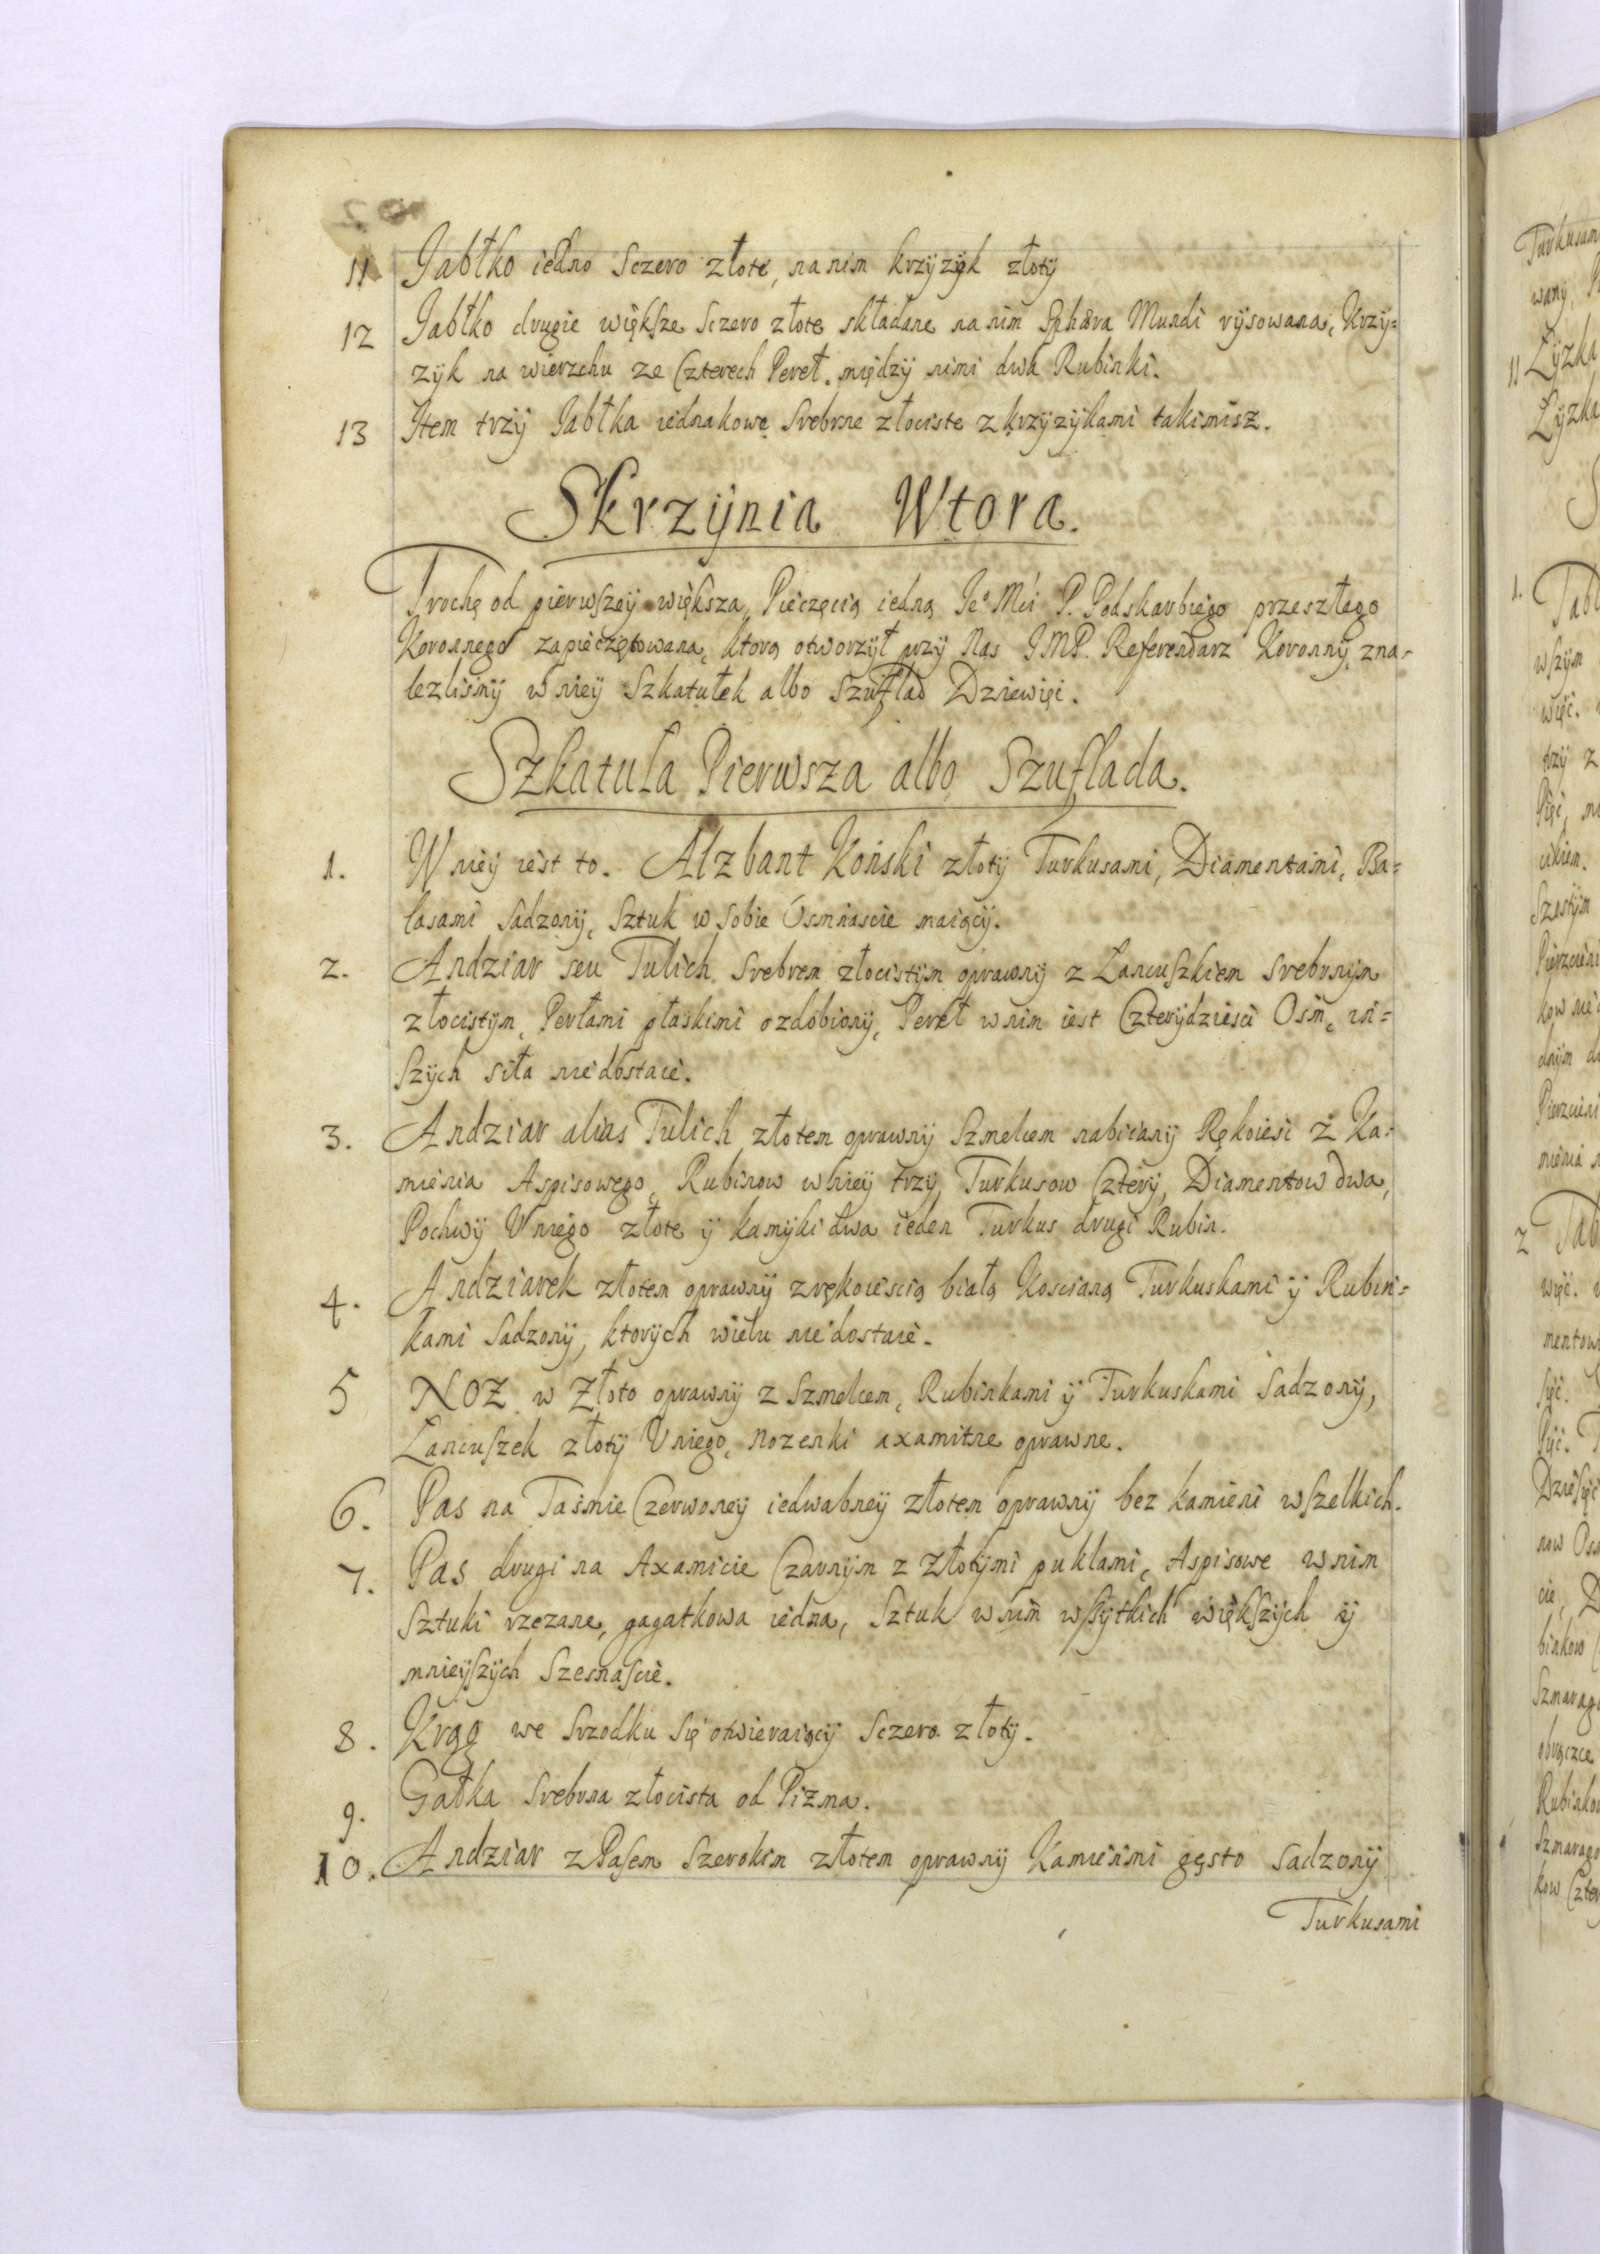 11 Jabłko iedno sczero złote, na nim krzyzyk złoty
12 Jabłko drugie większe sczero złote składane na nim Sphæra Mundi rysowana, Krzy=
zyk na wierzchu ze Czterech Pereł, między nimi dwa Rubinki.
13 Item trzy Jabłka iednakowe srebrne złociste z krzyzykami takimisz.
Skrzynia Wtora.
Trochę od pierwszey większa, Pieczęcią iedną Je° Mći P. Podskarbiego przeszłego
Koronnego zapieczętowana, ktorą otworzył przy Nas JMP. Referendarz Koronny, zna=
lezlismy w niey Szkatułek albo Szuflad Dziewięć.
Szkatuła Pierwsza albo Szuflada.
1. W niey iest to. Alzbant Koński złoty Turkusami, Diamentami, Ba=
lasami sadzony, sztuk w sobie Osmnascie maiący.
2. Andziar seu Tulich srebrem złocistym oprawny z Lancuszkiem srebrnym
złocistym, Perłami płaskimi ozdobiony, Pereł w nim iest Czterydziesci Osm, in=
szych siła niedostaie.
3. Andziar alias Tulich złotem oprawny Szmelcem nabiiany Rękoieść z Ka=
mienia Aspisowego, Rubinow w niey trzy, Turkusow Cztery, Diamentow dwa,
Pochwy U niego złote y kamyki dwa ieden Turkus drugi Rubin.
4. Andziarek złotem oprawny z rękoiescią białą Kościaną Turkuskami y Rubin=
kami sadzony, ktorych wielu niedostaie.
5 NOZ w Złoto oprawny z Szmelcem, Rubinkami y Turkuskami sadzony,
Lancuszek złoty U niego, nozenki axamitne oprawne.
6. Pas na Taśmie Czerwoney iedwabney złotem oprawny bez kamieni wszelkich.
7. Pas drugi na Axamicie Czarnym z złotymi puklami, Aspisowe w nim
sztuki rzezane, gagatkowa iedna, sztuk w nim wszytkich większych y
mnieyszych szesnascie.
8. Krąg we srzodku się otwieraiący sczero złoty.
9. Gałka srebrna złocista od Pizma.
10. Andziar z Pasem szerokim złotem oprawny Kamieńmi gęsto sadzony
Turkusami